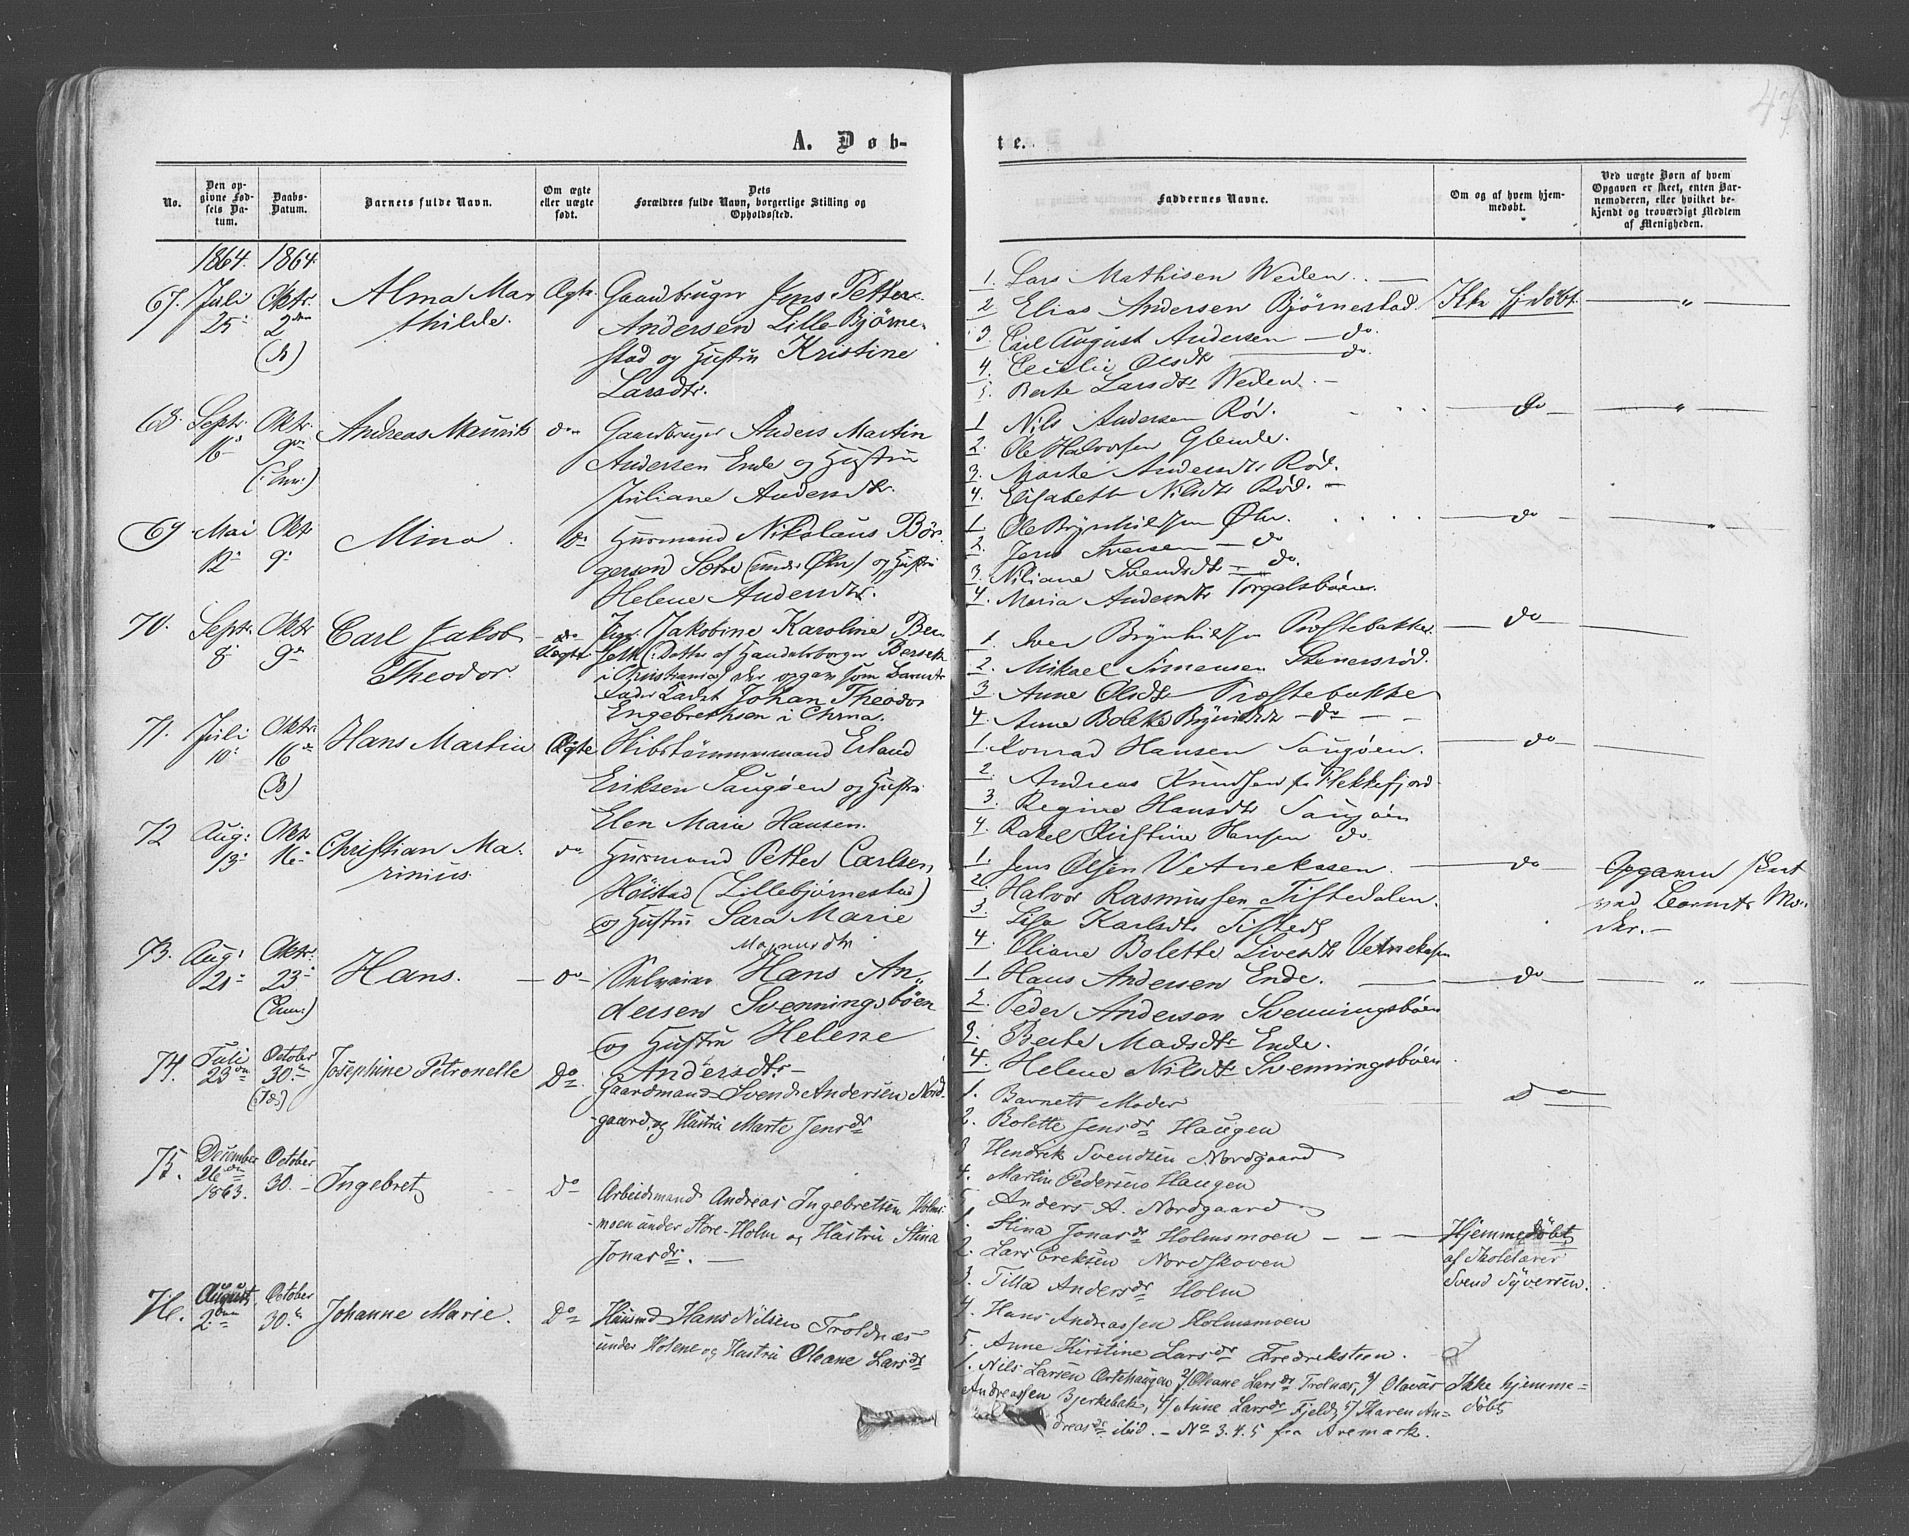 47
A. Døb-
te.
No.
Den op-
givne Fød-
sels Da-
tum.
Daabs-
Datum.
Barnets fulde Navn.
Om ægte
eller uægte
født.
Dets
Forældres fulde Navn, borgerlige Stilling og
Opholdssted.
Faddernes Navne.
Om og af hvem hjem-
medøbt.
Ved uægte Børn af hvem
Opgaven er skeet, enten Bar-
nemoderen, eller hvilket be-
kjendt og troværdigt Medlem
af Menigheden.
1864. 1864.
67. Juli Oktr. Alma Ma- Ægte Gaardbruger Jens Petter
25 2den thilde. Andersen Lille Bjørne-
stad og Hustru Kristine
Larsdtr.
1. Lars Mathisen Weden
2 Elias Andersen Bjørnestad. Ikke hj.døbt. "
3. Carl August Andersen do
4. Cecilie Olsdtr do.
5. Berte Larsdtr Weden.
68. Septr. Oktr. Andreas Mauritz do Gaardbruger Anders Martin
16 9de Andersen Ende og Hustru
Juliane Andersdtr.
1 Nils Andersen Rød. do "
2. Ole Halvorsen Glende.
3. Marte Andersdtr Rød.
4. Elisabeth Nilsdtr Rød.
69 Mai Okt Mina. do Husmand Nikolaus Bør-
12 9 gersen Sætre (under Øhr) og Hustru
Helene Andersdtr.
1. Ole Brynhilsen Øhr. do "
2. Jens Iversen do
3. Niliane Svendsdtr do.
4. Maria Andersdtr Torgalsbøen.
70. Septr. Oktr Carl Jakob do Pige Jakobine Karoline Ber-
8 9 Theodor. Uægte (Datter af Handelsborger Berseth
i Kristiania) der opgav som Barnets
Fader Kadet Johan Theodor
Engebrethsen i Chrna.
1. Iver Brynhilsen Præstebakke. do
2. Mikael Simensen Stenersrød.
3 Anne Olsdtr Præstebakke
4. Anne Bolette Brynildsdtr do
71. Juli Oktr. Hans Martin Ægte Skibstømmermand Erland
10 16 Eriksen Saugøen og Hustru
Elen Marie Hansen.
1. Konrad Hansen Saugøen. do
2. Andreas Knudsen fr Flekkefjord
3. Regine Hansdtr Saugøen
4. Rakel Kristine Hansen do.
72 Aug: Okt Christian Ma- do Husmand Petter Carlsen,
13 16 rinius. Høistad (Lillebjørnestad)
og Hustru Sara Marie
Magnusdtr
1. Jens Olsen Vetnekasen. do Opgaven skeet
2. Halvor Rasmussen Tistedalen. ved Barnets Mo-
3. Lise Karlsdtr Tistedl der.
4. Oliane Bolette Sivertsdtr Vetnekasen
73. Aug: Oktr. Hans. do Selveier Hans An-
21 23 dersen Svenningsbøen
og Hustru Helene
Andersdtr.
1 Hans Andersen Ende. do "
2. Peder Andersen Svenningsbøen
3. Berte Madsdtr Ende.
4. Helene Nilsdtr Svenningsbøen
74. Juli October Josephine Petronelle Do Gaardmand Svend Andersen Nord-
23 30 gaard, og Hustru Marte Jensdr
1. Barnets Moder do
2. Bolette Jensdr Haugen
3 Hendrik Svendsen Nordgaard
4. Martin Pedersen Haugen
5. Anders A. Nordgaard
75. December October Ingebret Do Arbeidsmand Andreas Ingebretsen Holms-
26de 30. moen under Store-Holm og Hustru Stina
1863. Jonasdr.
1. Stina Jonasdr Holmsmoen Hjemmedøbt
2. Lars Ereksen Nordskoven af Skolelærer
3. Tilla Andersdr Holm Svend Syversen.
4. Hans Andreassen Holmsmoen
5. Anne Kirstine Larsdr Fredriksteen.
76. August October Johanne Marie. Do Huusmd Hans Nilsen Troldnæs
2den 30 under Holene og Hustru Oleane Larsdr
1. Nils Larsen Ørtehaugen 2/ Oleane Larsdr Trolnæs, 3/ Olavus Ikke hjemme-
Andreassen Bjerkebak, 4/ Anne Larsdr Fjeld, 5/ Karen An- døbt
dreasdr ibid. - No 3.4.5 fra Aremark.